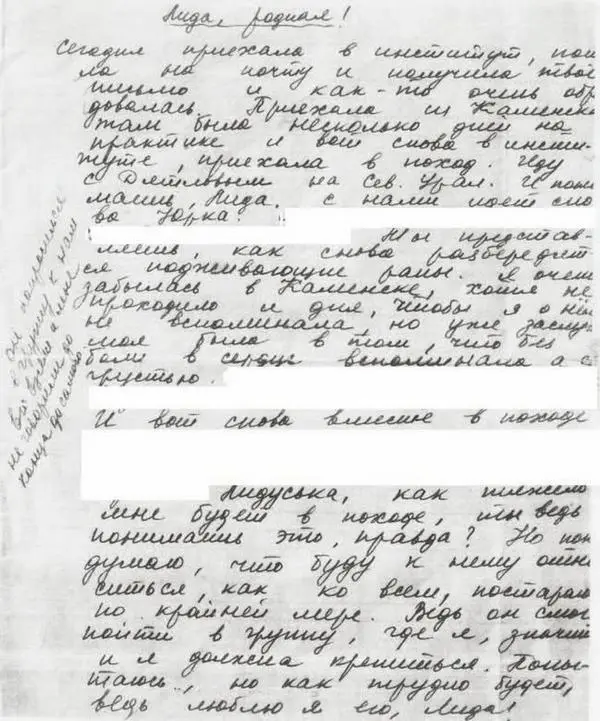 Лида, родная!
Сегодня приехала в институт, пош
ла на почту и получила твоё
письмо и как-то очень обр
довалась. Приехала из Каменска
там была несколько дней на
практике и вот снова в инсти-
туте, приехала в поход. Иду
с Дятловым на Сев. Урал. И пони
маешь, Лида, с нами идет сно
ва Юрка!
Ты представ-
ляешь, как снова разбередят
ся подживающие раны. Я очень
забылась в Каменске, хотя не
проходило и дня, чтобы я о нём
не вспоминала, но уже заслу
моя была в том, что без
боли в сердце вспоминала а с
грустью.
И вот снова вместе в походе
Лидуська, как тяжело
мне будет в походе, ты ведь
понимаешь это, правда? Но пои
думаю, что буду к нему отно
ситься, как ко всем, постараю
по крайней мере. Ведь он смог
пойти в группу, где я, значит
и я должна крепиться. Попы-
таюсь, но как трудно будет,
ведь люблю я его, Лида!
он попросился
в группу к нам
а мне
не говорили до
конца до самого